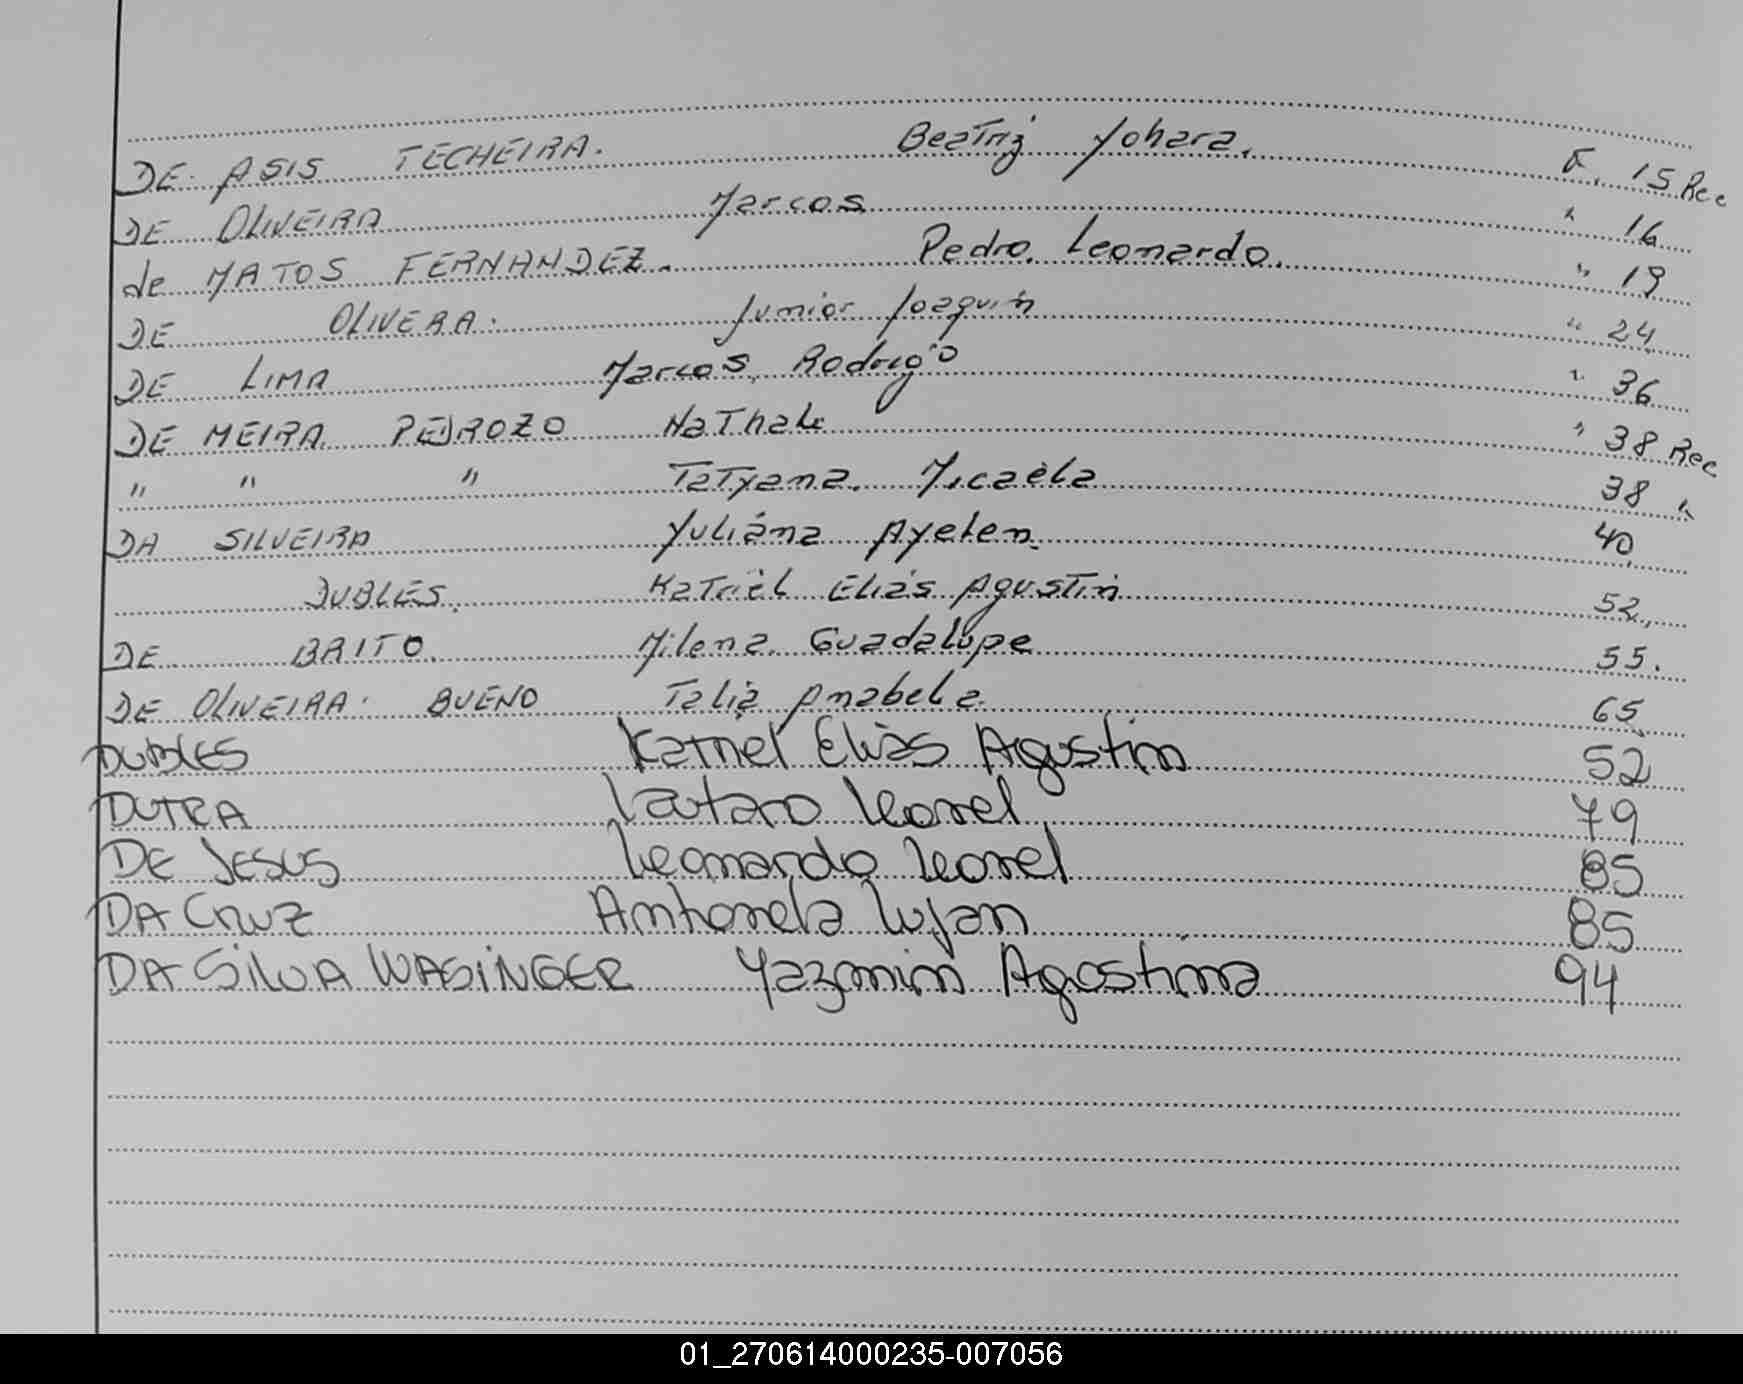 DE ASIS TECHEIRA. Beatriz Yohara. F. 15 Rec
DE OLIVEIRA Marcos " 16
de MATOS FERNANDEZ. Pedro Leonardo. " 19
DE OLIVERA. Junior Joaquin " 24
DE LIMA Marcos Rodrigo " 36
DE MEIRA PEDROZO Nathali " 38 Rec
" " " Tatyana Micaèla 38 "
DA SILVEIRA Yuliána Ayelen. 40
DUBLES. Katriel Eliás Agustin 52
DE BRITO. Milena Guadalupe 55.
DE OLIVEIRA BUENO Talia Anabela. 65
DUBLES Katriel Eliàs Agustin 52
DUTRA Lautaro Leonel 79
DE JESUS Leonardo Leonel 85
DA CRUZ Anthonela Lujan 85
DA SiLVA WASiNGER Yazmin Agostina 94
01_270614000235-007056